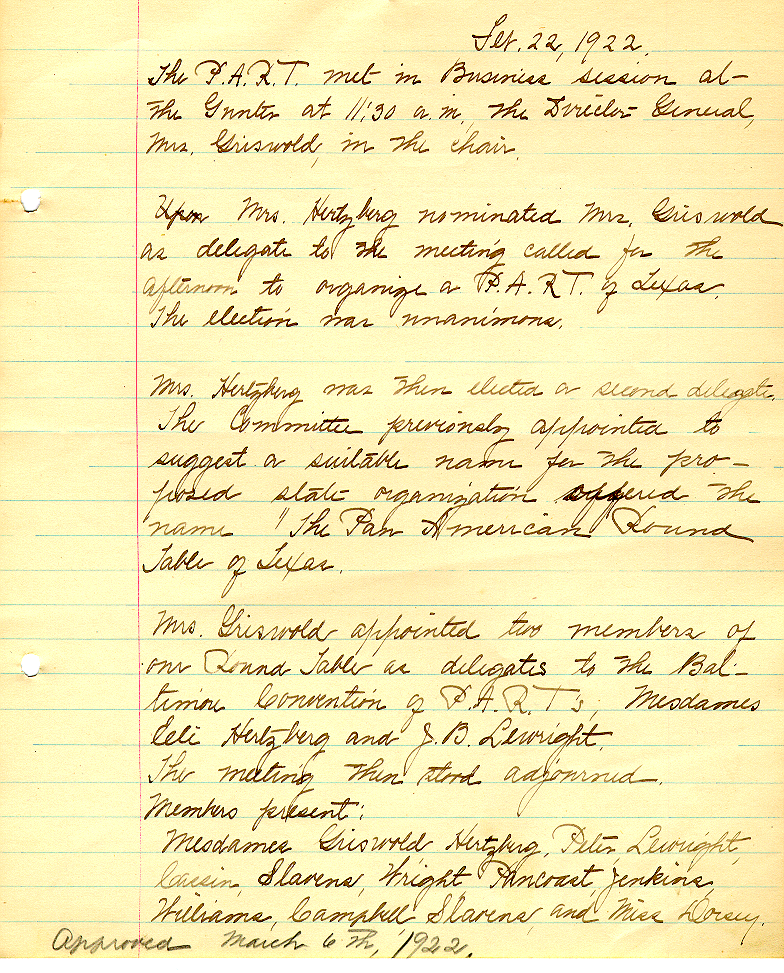 Feb. 22, 1922.
The P.A.R.T. met in Business session at
the Gunter at 11:30 a.m., the Director General,
Mrs. Griswold, in the chair.
Upon Mrs. Hertzberg nominated Mrs. Griswold
as delegate to the meeting called for the
afternoon to organize a P.A.R.T. of Texas.
The election was unanimous.
Mrs. Hertzberg was then elected a second delegate.
The Committee previously appointed to
suggest a suitable name for the pro-
posed state organization offered the
name "The Pan American Round
Table of Texas.
Mrs. Griswold appointed two members of
our Round Table as delegates to the Bal-
timore Convention of P.A.R.T's, Mesdames
Eli Hertzberg and J.B. Lewright.
The meeting then stood adjourned.
Members present:
Mesdames Griswold Hertzberg, Peter, Lewright,
Cassin, Slavens, Wright, Pancoast, Jenkins,
Williams, Campbell, Slavens, and Miss Dorsey.
Approved March 6th, 1922.